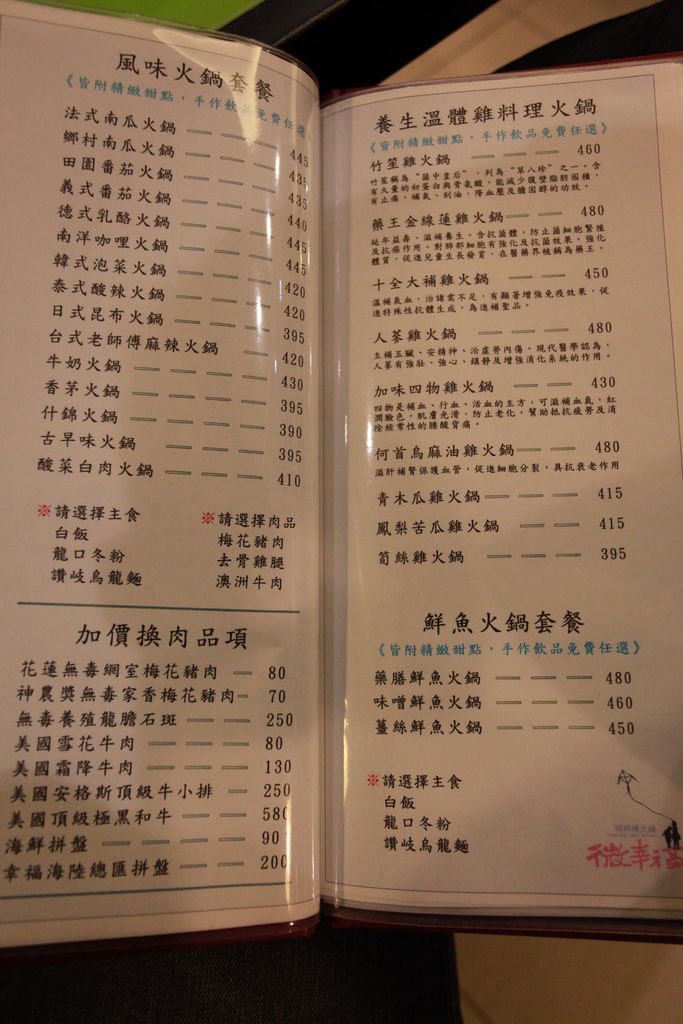 風味火鍋套餐
《皆附精緻甜點，手作飲品免費任選》
法式南瓜火鍋 445
鄉村南瓜火鍋 435
田園番茄火鍋 435
義式番茄火鍋 440
德式乳酪火鍋 445
南洋咖哩火鍋 445
韓式泡菜火鍋 420
泰式酸辣火鍋 420
日式昆布火鍋 395
台式老師傅麻辣火鍋 420
牛奶火鍋 430
香茅火鍋 395
什錦火鍋 390
古早味火鍋 395
酸菜白肉火鍋 410
※請選擇主食
白飯
龍口冬粉
讚岐烏龍麵
※請選擇肉品
梅花豬肉
去骨雞腿
澳洲牛肉
加價換肉品項
花蓮無毒網室梅花豬肉 80
神農獎無毒家香梅花豬肉 70
無毒養殖龍膽石斑 250
美國雪花牛肉 80
美國霜降牛肉 130
美國安格斯頂級牛小排 250
美國頂級極黑和牛 580
海鮮拼盤 90
幸福海陸總匯拼盤 200
養生溫體雞料理火鍋
《皆附精緻甜點，手作飲品免費任選》
竹笙雞火鍋 460
竹笙被稱為"菌中皇后"，列為"草八珍"之一。含
有大量的初蛋白與胥氨酸，能減少腹壁脂肪囤積，
有止痛、補氣、刮油、降血壓及膽固醇的功效。
藥王金線蓮雞火鍋 480
延年益壽、滋補養生。含抗菌體，防止菌細胞繁殖
及抗癌作用。對肺部細胞有強化及抗菌效果。強化
體質，促進兒童生長發育，在醫藥界被稱為藥王。
十全大補雞火鍋 450
溫補氣血，治諸虛不足，有顯著增強免疫效果，促
進特殊性抗體生成，為進補聖品。
人蔘雞火鍋 480
主補五臟、安精神、治虛勞內傷。現代醫學認為，
人蔘有強壯、強心、鎮靜及增強消化系統的作用。
加味四物雞火鍋 430
四物是補血、行血、活血的主方，可滋補血氣，紅
潤臉色，肌膚光滑，防止老化，幫助抵抗疲勞及消
除經常性的腰酸背痛。
何首烏麻油雞火鍋 480
滋肝補腎保護血管，促進細胞分裂，具抗衰老作用
青木瓜雞火鍋 415
鳳梨苦瓜雞火鍋 415
筍絲雞火鍋 395
鮮魚火鍋套餐
《皆附精緻甜點，手作飲品免費任選》
藥膳鮮魚火鍋 480
味噌鮮魚火鍋 460
薑絲鮮魚火鍋 450
※請選擇主食
白飯
龍口冬粉
讚岐烏龍麵
微幸福